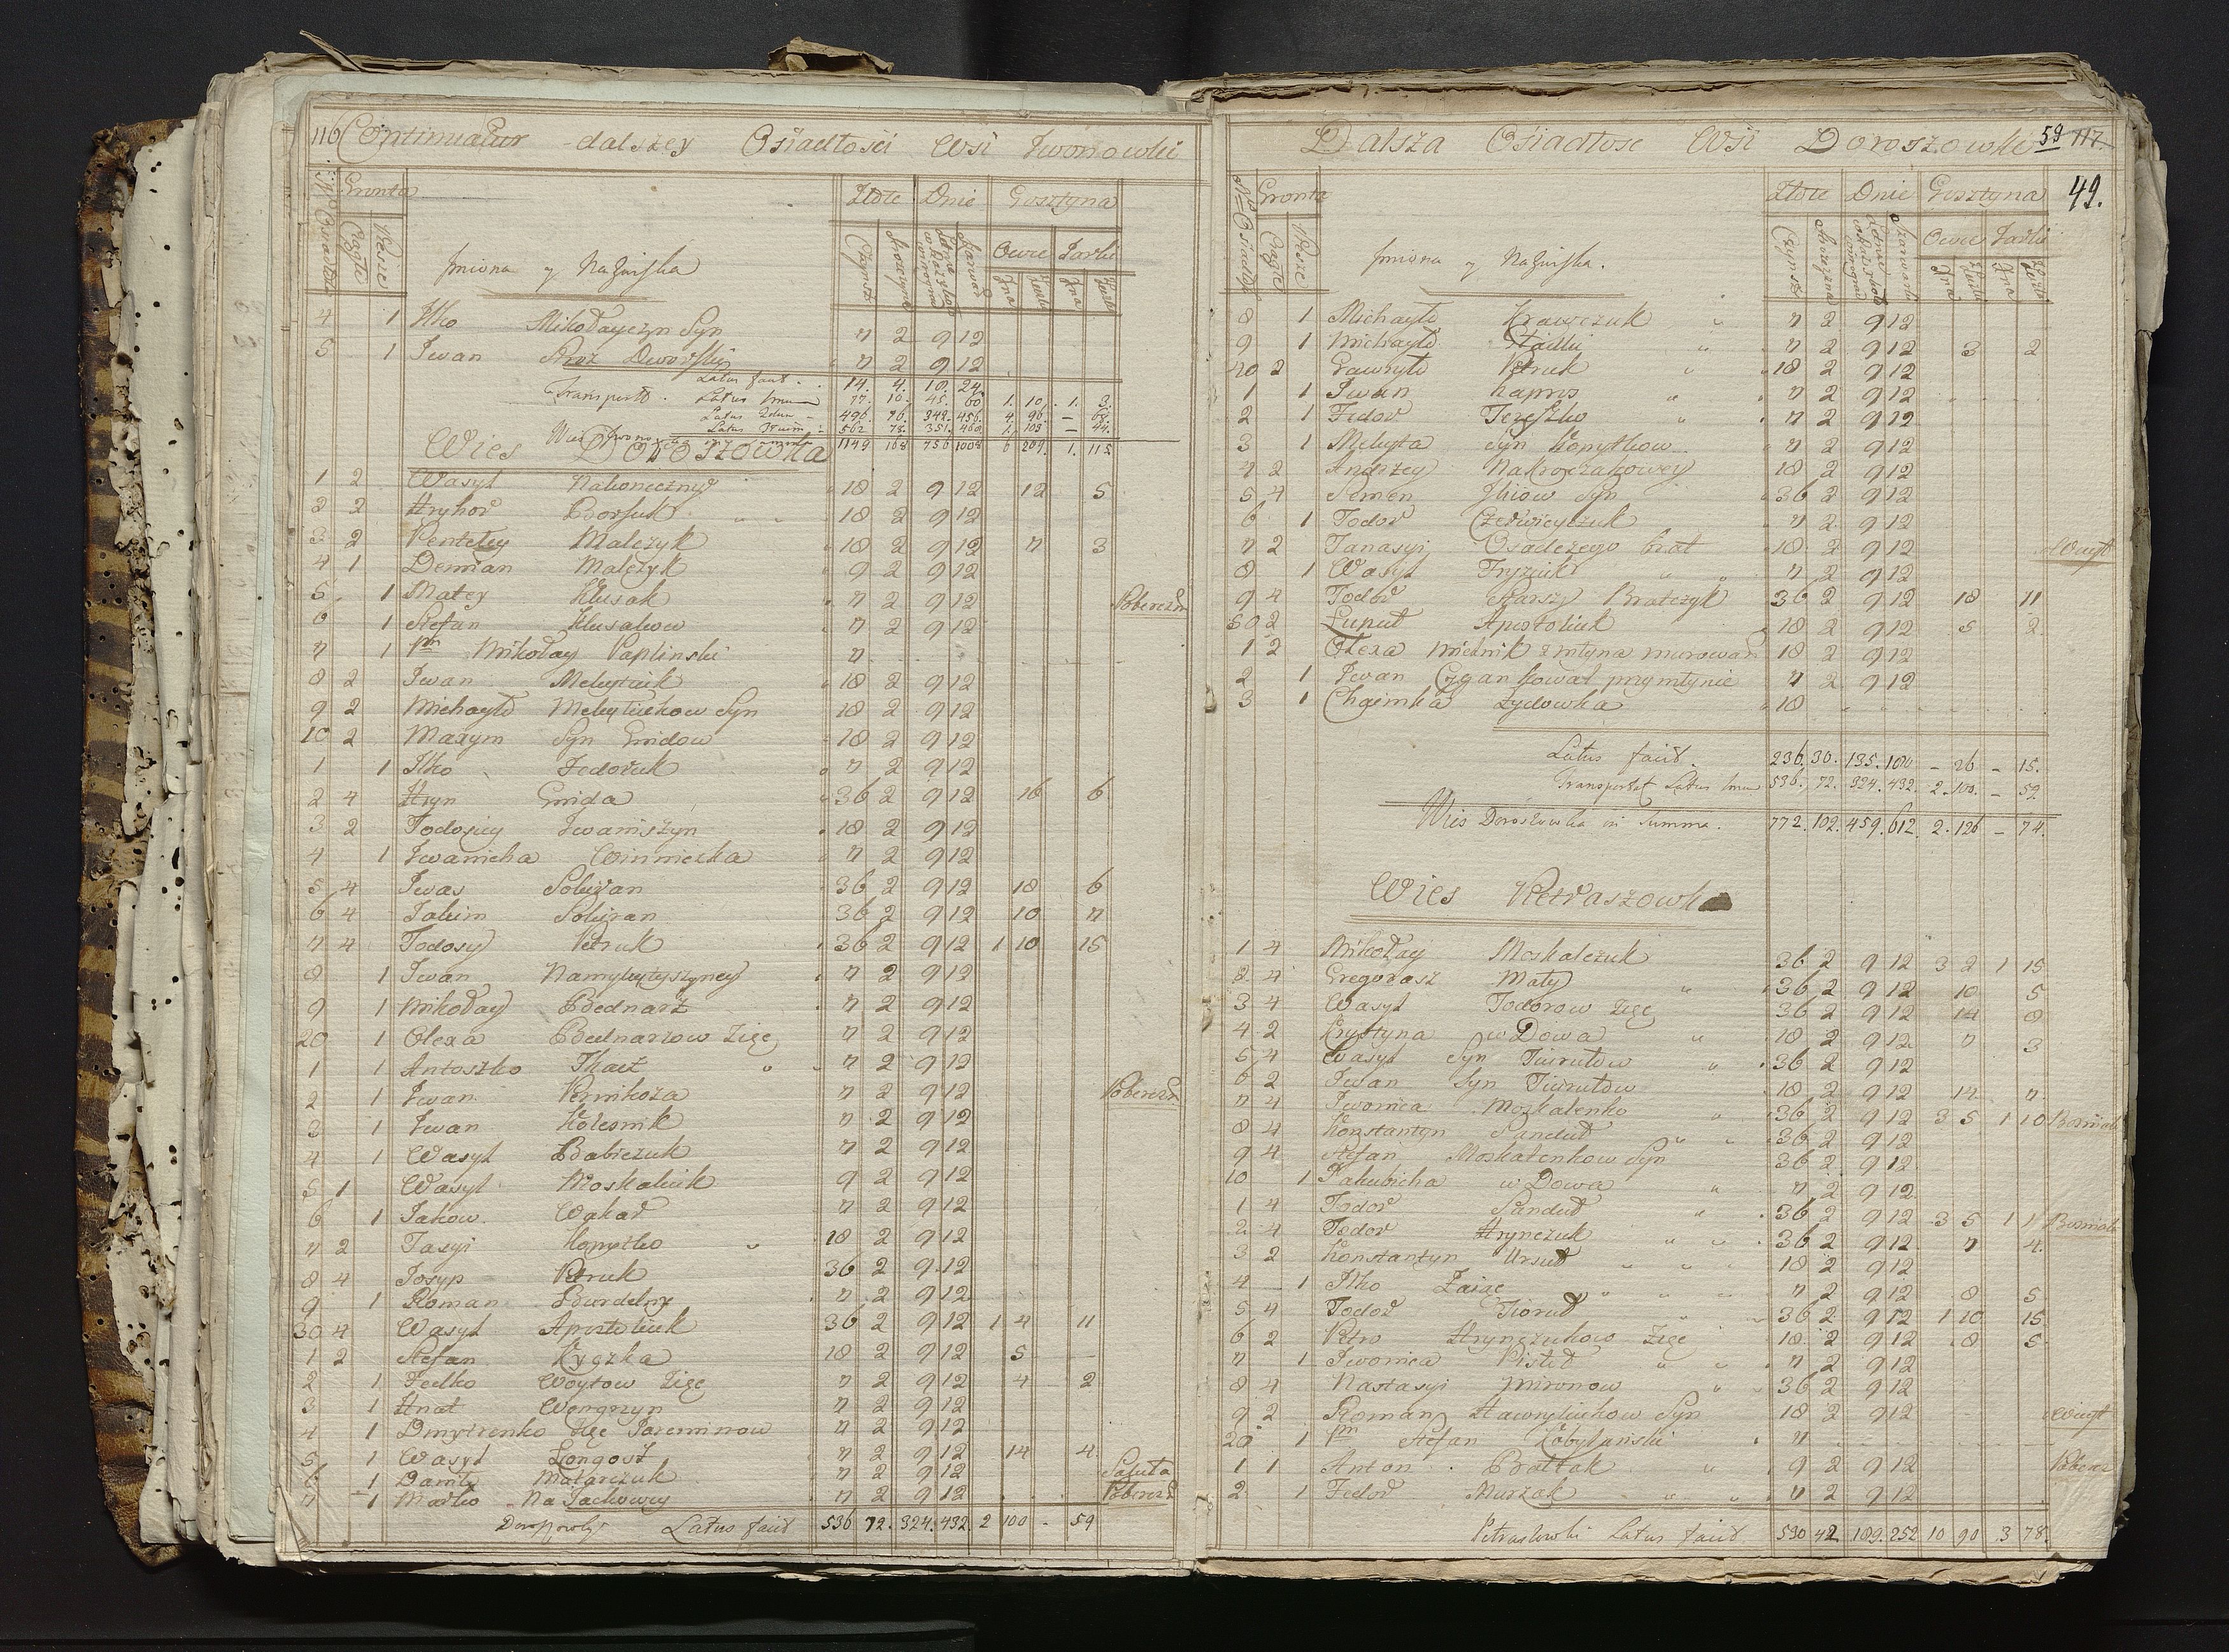 116 Continuatur dalszey Osiadłości Wsi Iwonowki
Gronta Złote Dnie Gosztyna
Ciągłe Piesze Imiona y Nazwiska Czynsz Owce Jarki
4 1 Ilko Mikołayczyn Syn 7 2 9 12
5 1 Iwan Dworski 7 2 9 12
Latus facit 14. 4. 10. 24.
Transport. Latus 77. 10. 45. 60 1. 10. 1. 3.
Latus 496 76. 342. 456. 4. 96 — 68.
Latus 562 78. 351. 468 1. 103 — 44.
1149 168 756 1008 6 209. 1. 115
Wies Doroszowka
1 2 Wasyl Nakoneczny 18 2 9 12 12 5
2 2 Hryhor Borsuk 18 2 9 12
3 2 Penteley Malczyk 18 2 9 12 7 3
4 1 Demian Malczyk 9 2 9 12
5 1 Matey Klusak 7 2 9 12 Pobereżn
6 1 Stefan Klusakow 7 2 9 12
7 1 Pan Mikołay Paplinski 7
8 2 Iwan Mekytiuk 18 2 9 12
9 2 Michayło Mekytiukow Syn 18 2 9 12
10 2 Maxym Syn Gnidow 18 2 9 12
1 1 Ilko Fedoruk 7 2 9 12
2 4 Hryn Gnida 36 2 9 12 16 6
3 2 Todosiey Iwaniszyn 18 2 9 12
4 1 Iwanicha Winniczka 7 2 9 12
5 4 Iwas Soliwan 36 2 9 12 18 6
6 4 Jakim Soliwan 36 2 9 12 10 7
7 4 Todosy Petruk 36 2 9 12 1 10 15
8 1 Iwan Namykytyszyney 7 2 9 12
9 1 Mikołay Bednarz 7 2 9 12
20 1 Olexa Bednarzow Zięc 7 2 9 12
1 1 Antoszko Tkacz 7 2 9 12
2 1 Iwan Pernikoza 7 2 9 12 Pobereżn
3 1 Iwan Kolesnik 7 2 9 12
4 1 Wasyl Babiczuk 7 2 9 12
5 1 Wasyl Moskaliuk 9 2 9 12
6 1 Jakow Wakar 7 2 9 12
7 2 Tasyi Kopytko 18 2 9 12
8 4 Josyp Petruk 36 2 9 12
9 1 Roman Burdelny 7 2 9 12
30 4 Wasyl Apostoliuk 36 2 9 12 1 4 11
1 2 Stefan Kyczka 18 2 9 12 5 —
2 1 Fedko Woytow Zięc 7 2 9 12 4 2
3 1 Hnat Wengrzyn 7 2 9 12
4 1 Dmytrenko Zięc Pareminow 7 2 9 12
5 1 Wasyl Longosz 7 2 9 12 14 4
6 1 Danilo Malarczuk 7 2 9 12 Saluta
7 1 Marko Na Jackowey 7 2 9 12 Pobereżn
Latus facit 536 72. 324. 432. 2 100 - 59
Dalsza Osiadłosc Wsi Doroszowki 59 117.
49.
Gronta Złote Dnie Gosztyna
Ciągłe Piesze Imiona y Nazwiska. Czynsz Owce Jarki
8 1 Michayło Krawczuk 7 2 9 12
9 1 Michayło 7 2 9 12 3 2
40 2 Gawryło Petruk 18 2 9 12
1 1 Iwan 7 2 9 12
2 1 Fedor Tereszko 7 2 9 12
3 1 Mekyta Syn Kopytkow 7 2 9 12
4 2 Andrzey 18 2 9 12
5 4 Semen Ilkiow Syn 36 2 9 12
6 1 Todor 7 2 9 12
7 2 Tanasyi Osadczego brat 18 2 9 12 Woyt
8 1 Wasyl Fryziuk 7 2 9 12
9 4 Todor Starszy Bratczyk 36 2 9 12 18 11
50 2 Lupul Apostoliuk 18 2 9 12 5 2
1 2 Olexa Mielnik z młyna murowan 18 2 9 12
2 1 Iwan Cygan kowal przy młynie 7 2 9 12
3 1 Chaimka Zydowka 18
Latus facit. 236. 30. 135. 180 — 26 — 15.
Transportat Latus 536. 72. 324. 432. 2. 100. — 59.
Wies Doroszowka in Summa. 772. 102. 459. 612. 2. 126 — 74.
Wies Petraszowka
1 4 Mikołay Moskalczuk 36 2 9 12 3 2 1 15
2 4 Gregorasz Mały 36 2 9 12 10 5
3 4 Wasyl Todorow Zięc 36 2 9 12 14 8
4 2 Krystyna wDowa 18 2 9 12 7 3
5 4 Wasyl Syn Tiurułow 36 2 9 12
6 2 Iwan Syn Tiurułow 18 2 9 12 14 7
7 4 Iwonica Moskalenko 36 2 9 12 3 5 1 10
8 4 Konstantyn Sanduł 36 2 9 12
9 4 Stefan Moskalenkow Syn 36 2 9 12
10 1 Jakubicha wDowa 7 2 9 12
1 4 Todor Sanduł 36 2 9 12 3 5 1 1
2 4 Todor Hrynczuk 36 2 9 12 7 4.
3 2 Konstantyn Ursuł 18 2 9 12
4 1 Ilko Zaiąc 7 2 9 12 8 5
5 4 Todor Tioruł 36 2 9 12 1 10 15
6 2 Petro Hrynczukow Zięc 18 2 9 12 8 5
7 1 Iwonica Pistuł 7 2 9 12
8 4 Nastasyi Mironow 36 2 9 12
9 2 Roman Hawryliukow Syn 18 2 9 12 Woyt
20 1 Pan Stefan Kobylanski 7
1 1 Anton Brattak 9 2 9 12 Poberez
2 1 Fedor Murzak 7 2 9 12
Petraszowki Latus facit 530 42 189. 252 10 90 3 78.